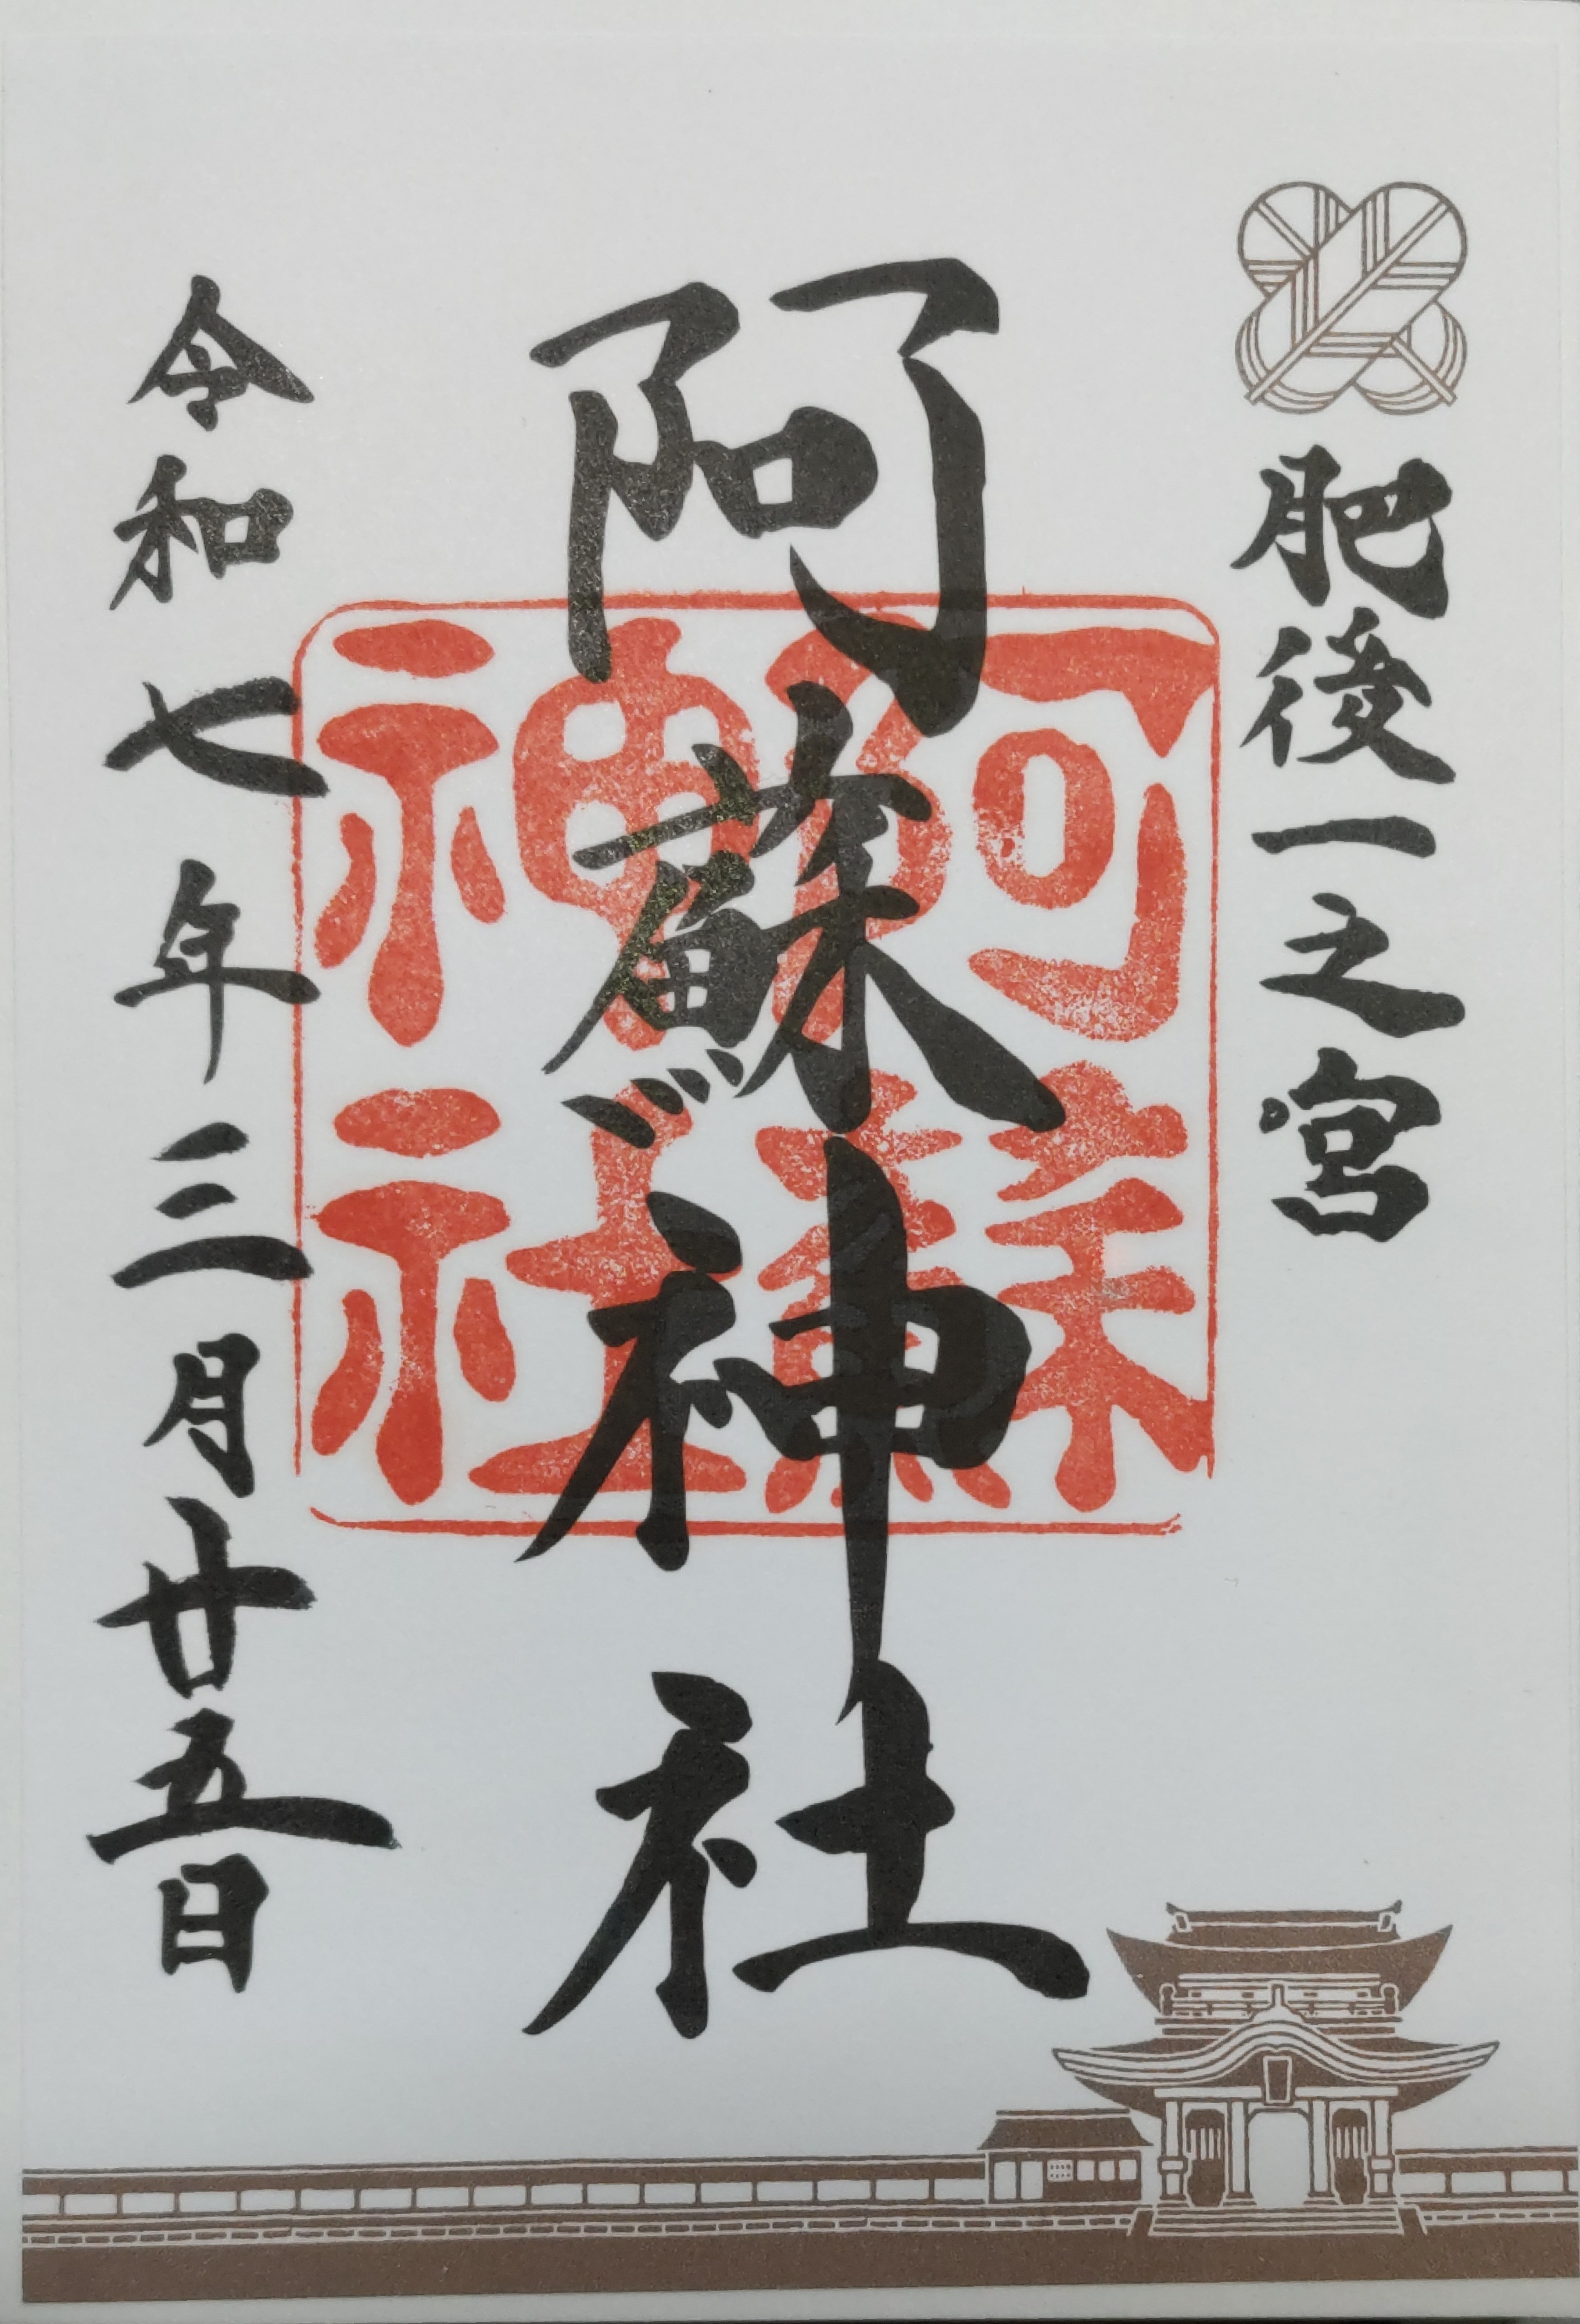 肥後一之宮
阿蘇神社
阿蘇神社
令和七年三月廿五日